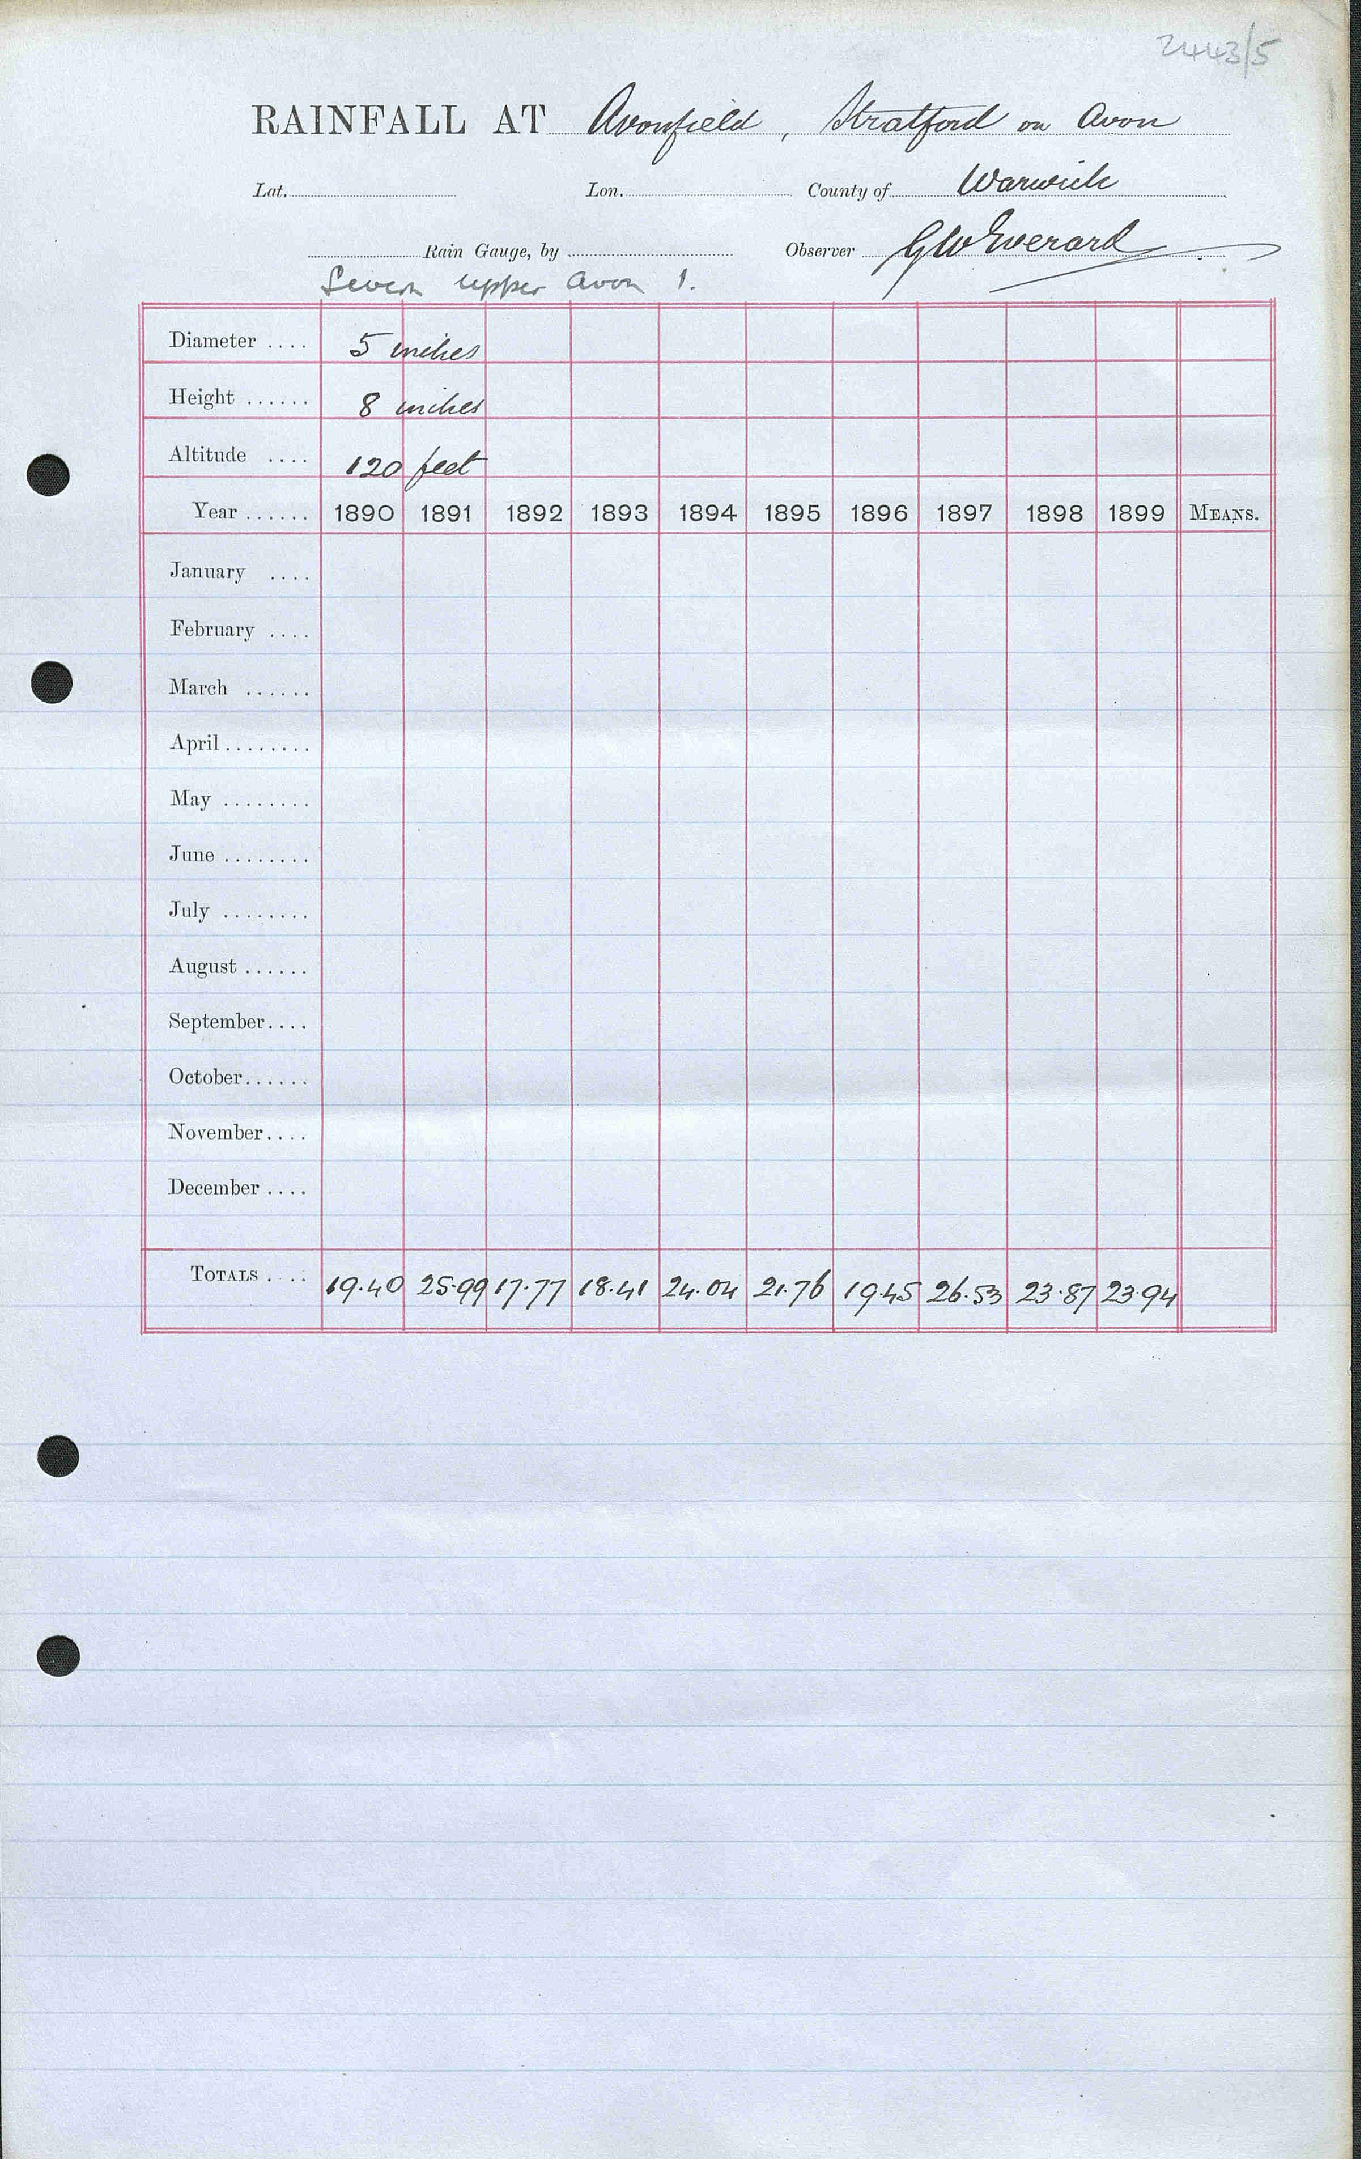 2443/5
RAINFALL AT Avonfield, Stratford on Avon
Lat. Lon. County of Warwick
Rain Gauge, by Observer GWEverard
Severn Upper Avon 1.
Diameter .... 5 inches
Height ...... 8 inches
Altitude .... 120 feet
Year ...... 1890 1891 1892 1893 1894 1895 1896 1897 1898 1899 MEANS.
January ....
February ....
March ......
April ........
May ........
June ........
July ........
August ......
September ....
October ......
November ....
December ....
TOTALS .... 19.40 25.99 17.77 18.41 24.04 21.76 19.45 26.53 23.87 23.94